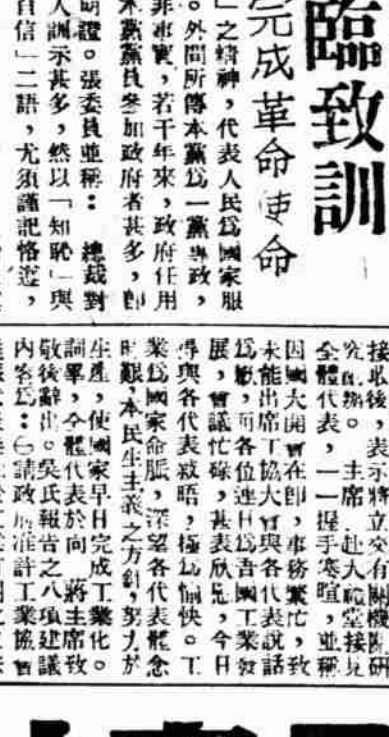 臨致訓
完成革命使命
」之精神，代表人民爲國家服
。外間所傳本黨爲一黨專政，
非事實，若干年來，政府任用
本黨黨員參加政府者甚多，卽
明證。張委員並稱：　總裁對
人訓示甚多，然以「知恥」與
自信」二語，尤須謹記恪遵，
接收後，表示將立交有關機關研
究辦。主席　赴大禮堂接見
全體代表，一一握手寒暄，並稱
因國大開會在卽，事務繁忙，致
未能出席工協大會與各代表說話
爲歉，而各位連日爲吾國工業發
展，會議忙碌，甚表欣慰，今日
得與各代表敘晤，極爲愉快。工
業爲國家命脈，深望各代表體念
時艱，本民生主義之方針，努力於
生產，使國家早日完成工業化。
詞畢，全體代表於向　蔣主席致
敬後辭出。吳氏報告之八項建議
內容爲：㊀請政府准許工業協會